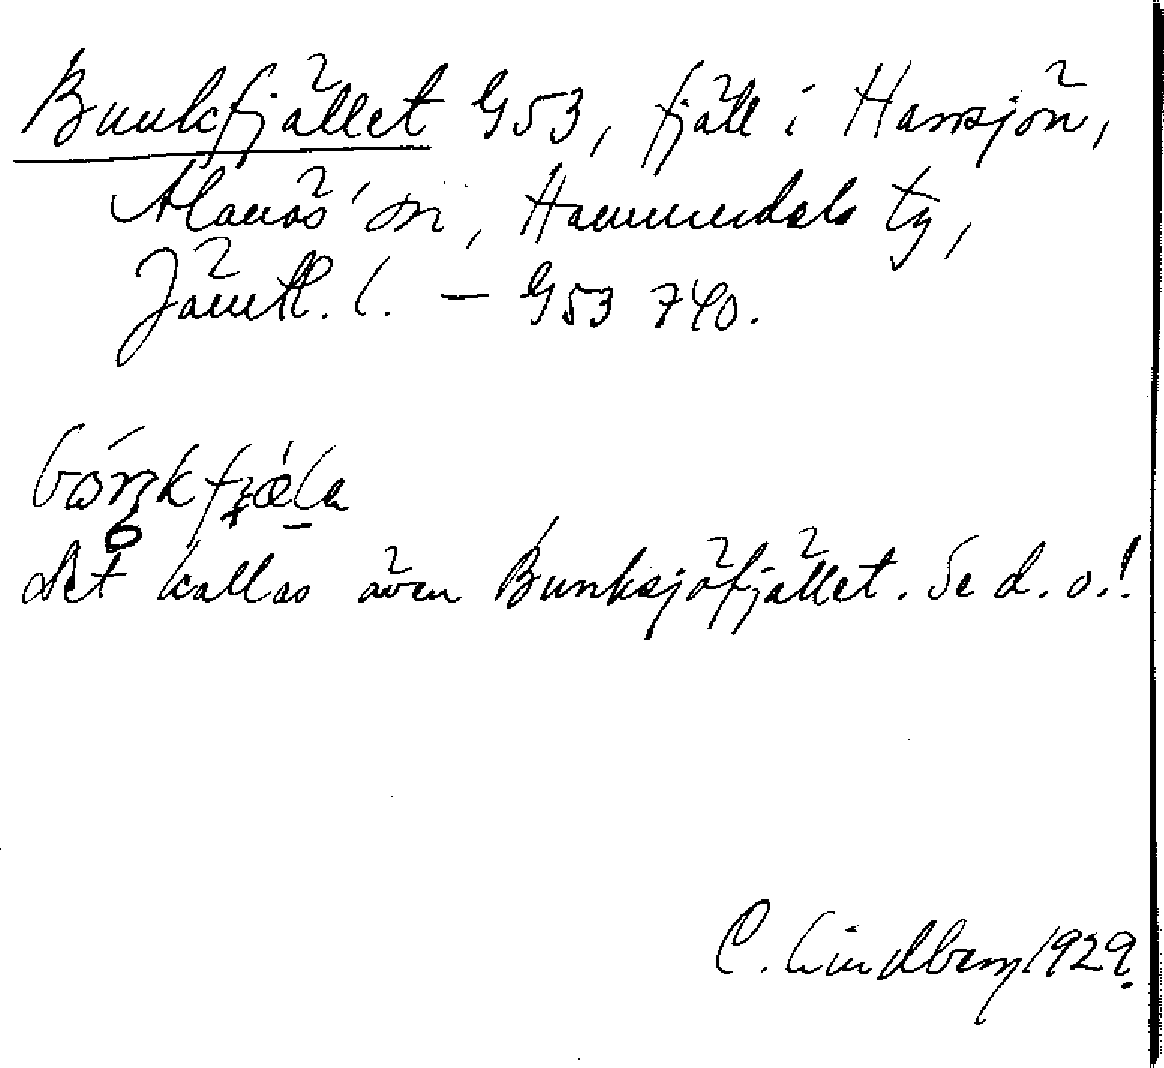 Bunkfjället G53, fjäll i Harrsjön,
Alanäs sn, Hammerdals tg,
Jämtl. l. — G53 740.
Det kallas även Bunksjöfjället. Se d. o.!
C. Lindberg 1929.